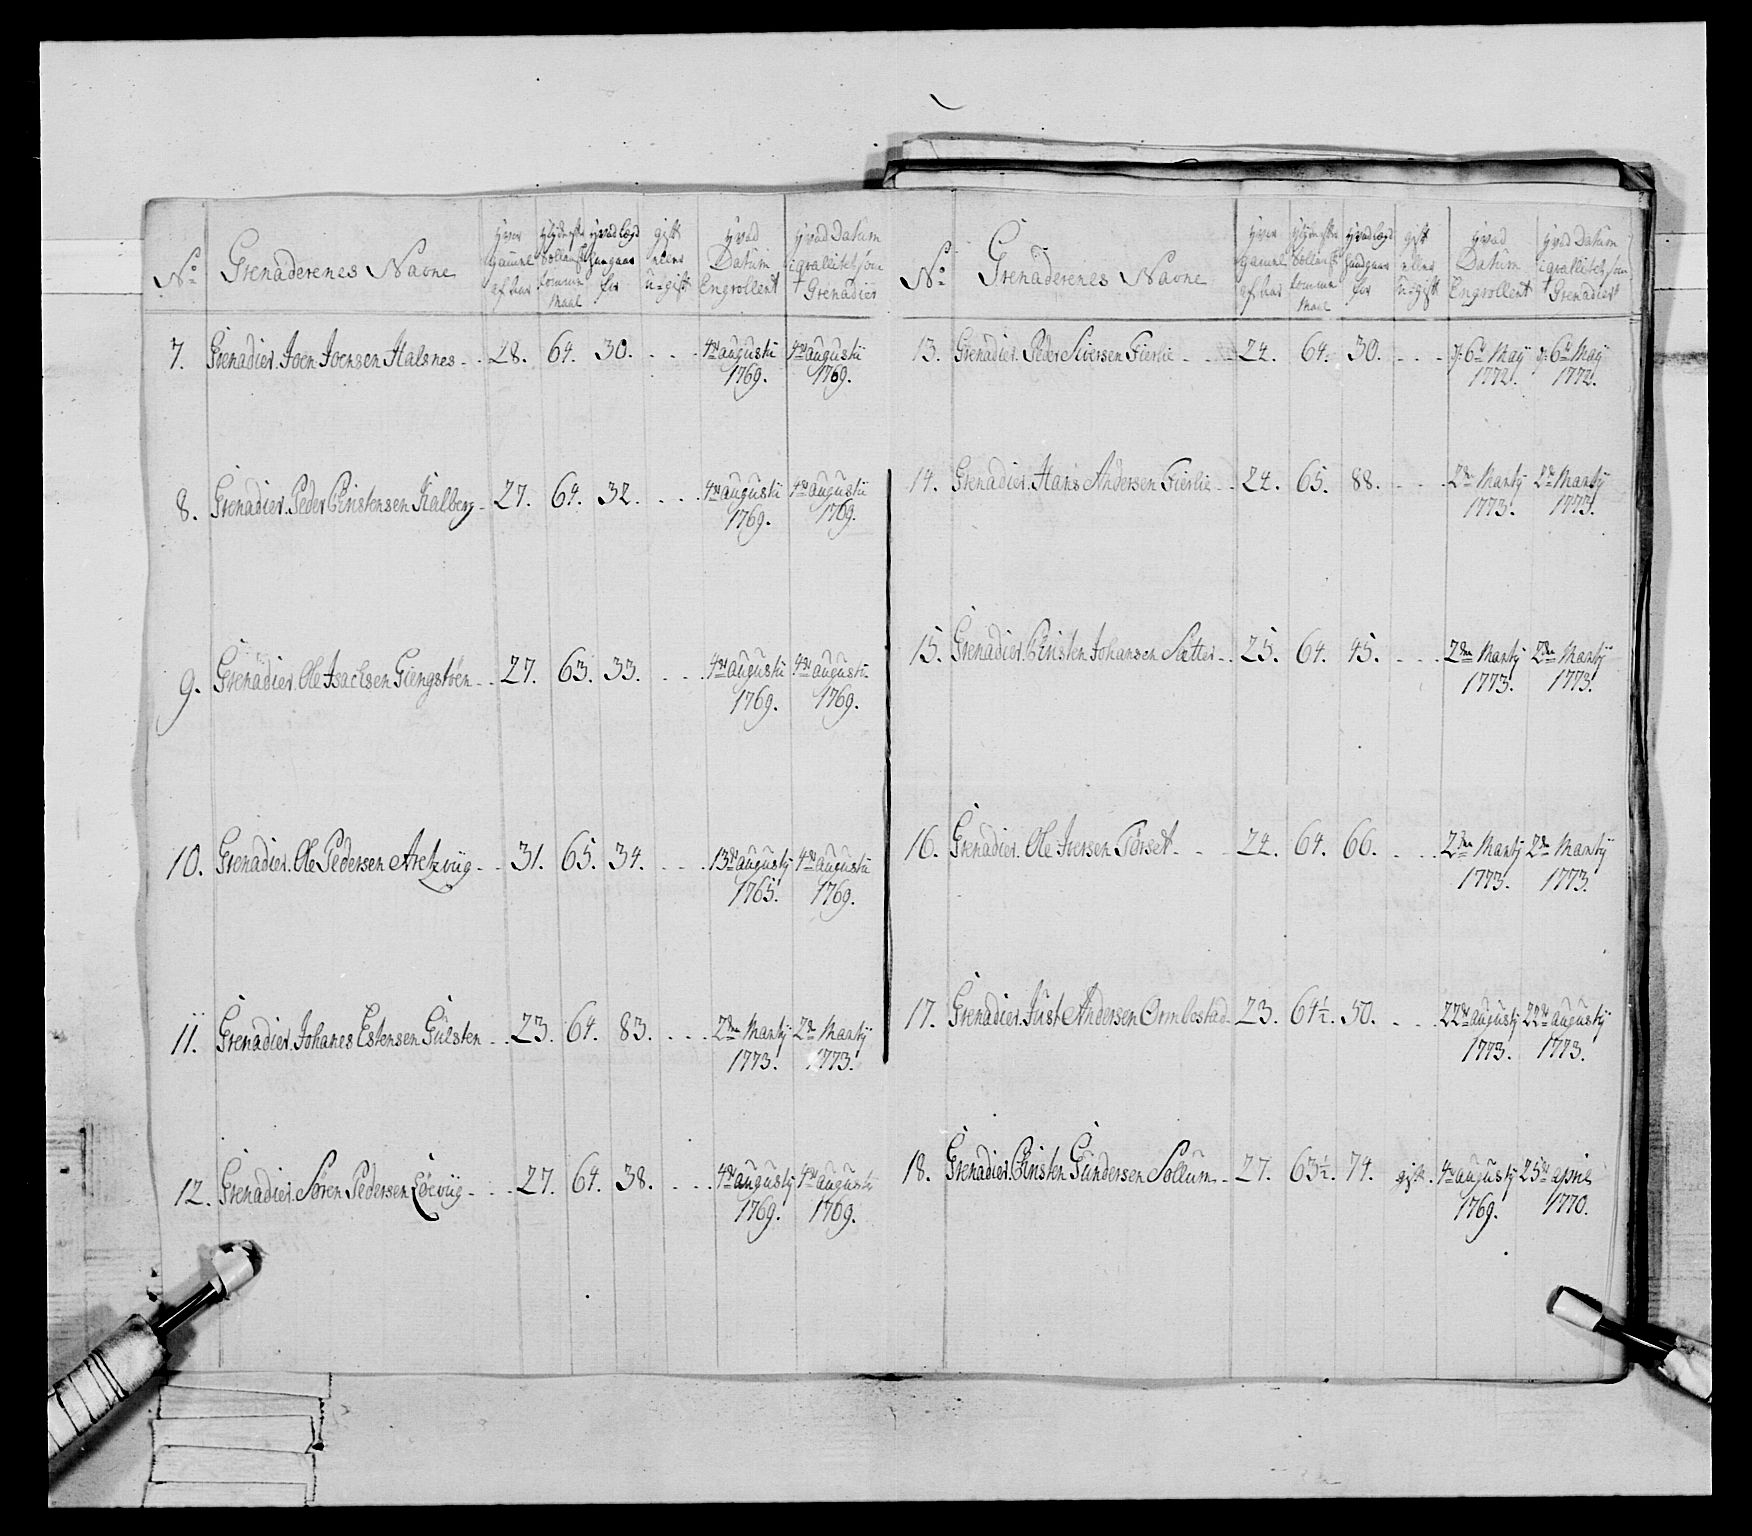 No Grenaderenes Navne Hver gamel af aar Hvad lægd hand gaar for gift eller u-gift Hvad Datum Engrollert Hvad Datum Grenadier
7. Grenadier. Joen Joensen Halsnes 28. 64. 30. 4de augustii 1769. 4de augustii 1769.
8. Grenadier. Peder Christensen Kalberg 27. 64. 32. 4de augustii 1769. 4de augustii 1769.
9. Grenadier. Ole Isachsen Giengstøen 27. 63. 33. 4de augustii 1769. 4de augustii 1769.
10. Grenadier. Ole Pedersen Aretzviig 31. 65. 34. 13de augustij 1765. 4de augustii 1769.
11. Grenadier. Johanes Estensen Gulsten 23. 64. 83. 2den Martij 1773. 2den Martij 1773.
12. Grenadier. Søren Pedersen 27. 64. 38. 4de augustij 1769. 4de augusti 1769.
No Grenaderenes Navne Hver gamel af aar Hvad lægd hand gaar for gift eller u-gift Hvad Datum Engrollert Hvad Datum Grenadier
13. Grenadier. Siversen Fierlie 24. 64. 30. 6te May 1772. 6te May 1772.
14. Grenadier. Hans Andersen Fierlie 24. 65. 88. 2den Martij 1773. 2den Martij 1773.
15. Grenadier. Christen Johansen Sætter 25. 64. 45. 2den Martij 1773. 2den Martij 1773.
16. Grenadier. Ole Iversen Tørset 24. 64. 66. 2den Martij 1773. 2den Martij 1773.
17. Grenadier. Just Andersen Ormbostad 23. 64½. 50. 22de augustij 1773. 22de augustij 1773.
18. Grenadier. Christen Gundersen Sollum 27. 63½. 74. gift. 4de augustij 1769. 25de april 1770.